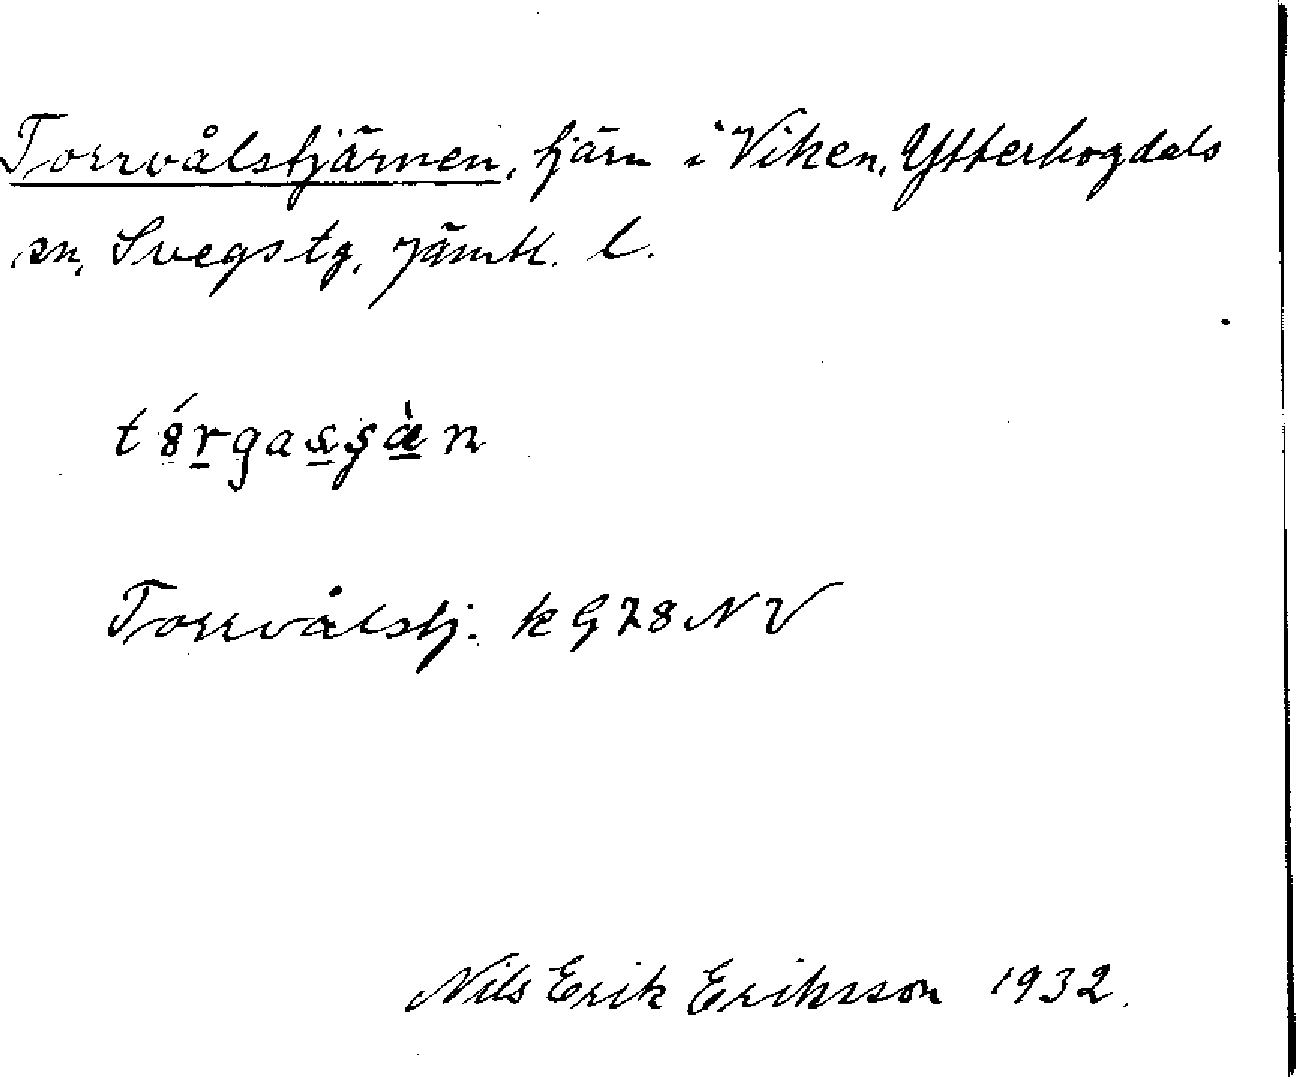 Torrvålstjärnen, tjärn i Viken, Ytterhogdals
sn, Svegs tg, Jämtl. l.
Torrvålstj. k G 28 NV
Nils Erik Eriksson 1932.